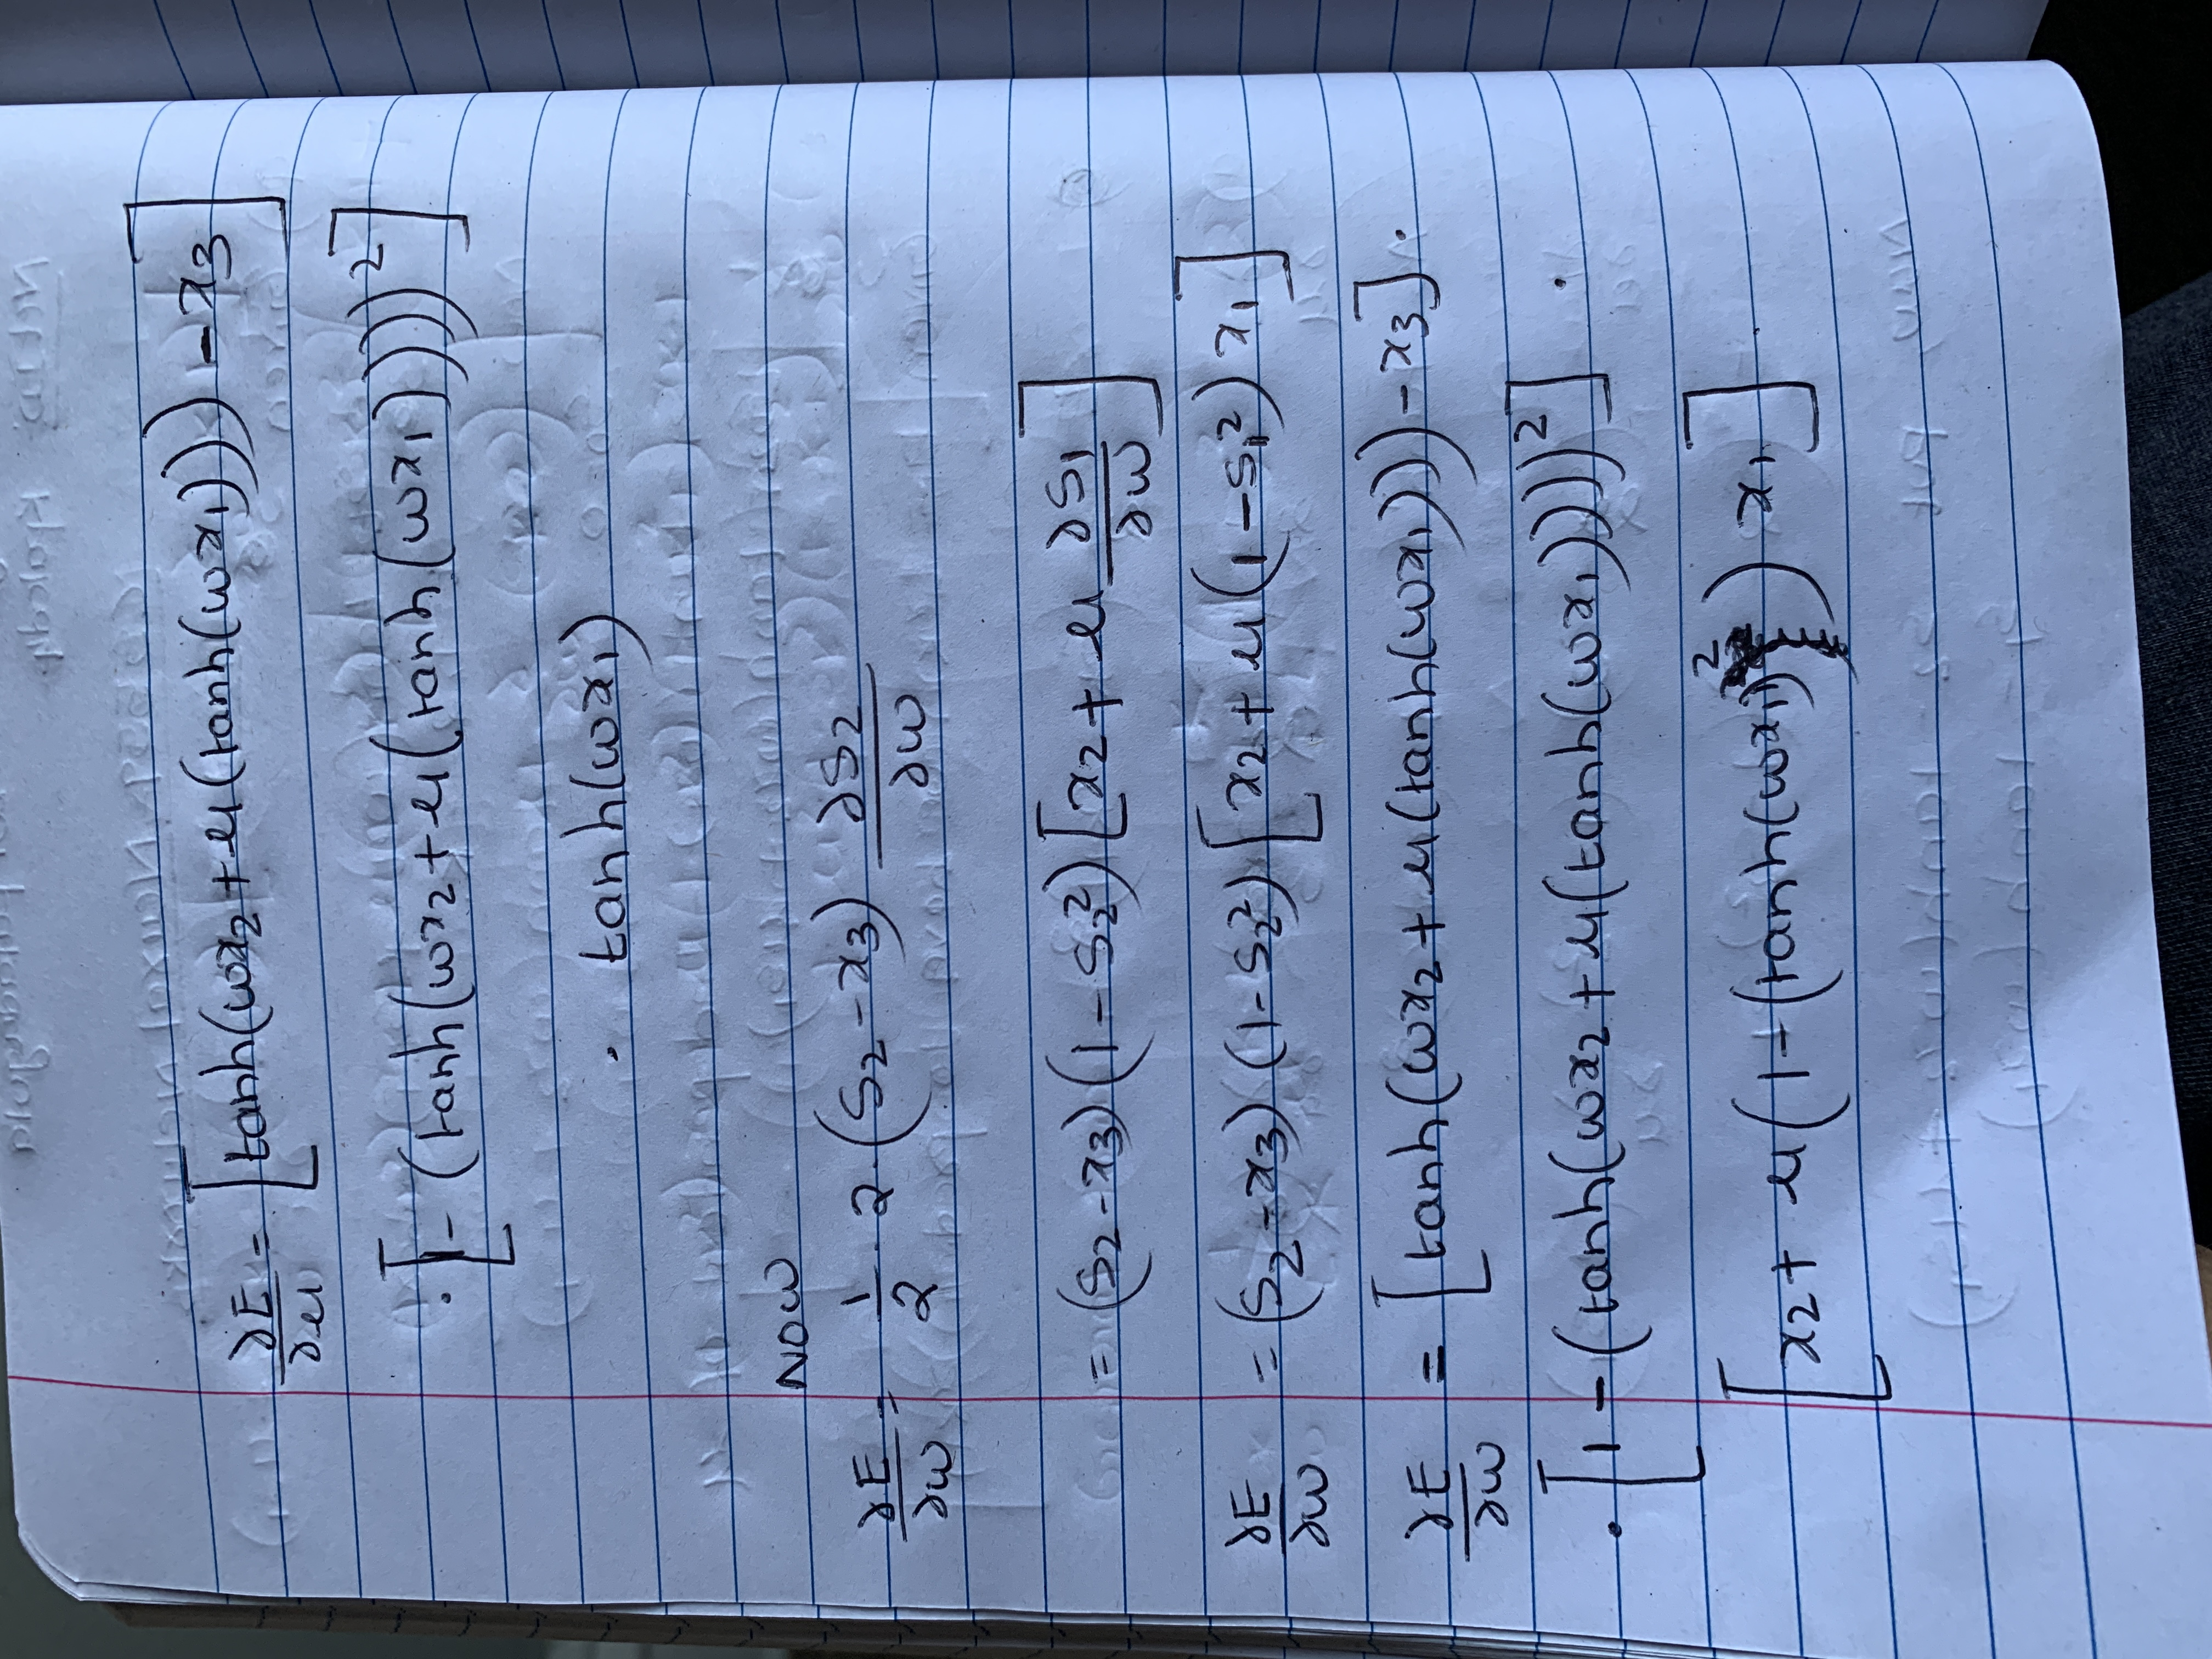 ∂E/∂u = [tanh(wx₂ + u(tanh(wx₁))) - x₃]
· [1 - (tanh(wx₂ + u(tanh(wx₁))))²]
· tanh(wx₁)
NOW
∂E/∂w = 1/2 · 2 · (S₂ - x₃) ∂S₂/∂w
= (S₂ - x₃)(1 - S₂²)[x₂ + u ∂S₁/∂w]
∂E/∂w = (S₂ - x₃)(1 - S₂²)[x₂ + u(1 - S₁²)x₁]
∂E/∂w = [tanh(wx₂ + u(tanh(wx₁))) - x₃] ·
· [1 - (tanh(wx₂ + u(tanh(wx₁))))²] ·
[x₂ + u(1 - (tanh(wx₁))²) x₁] ·